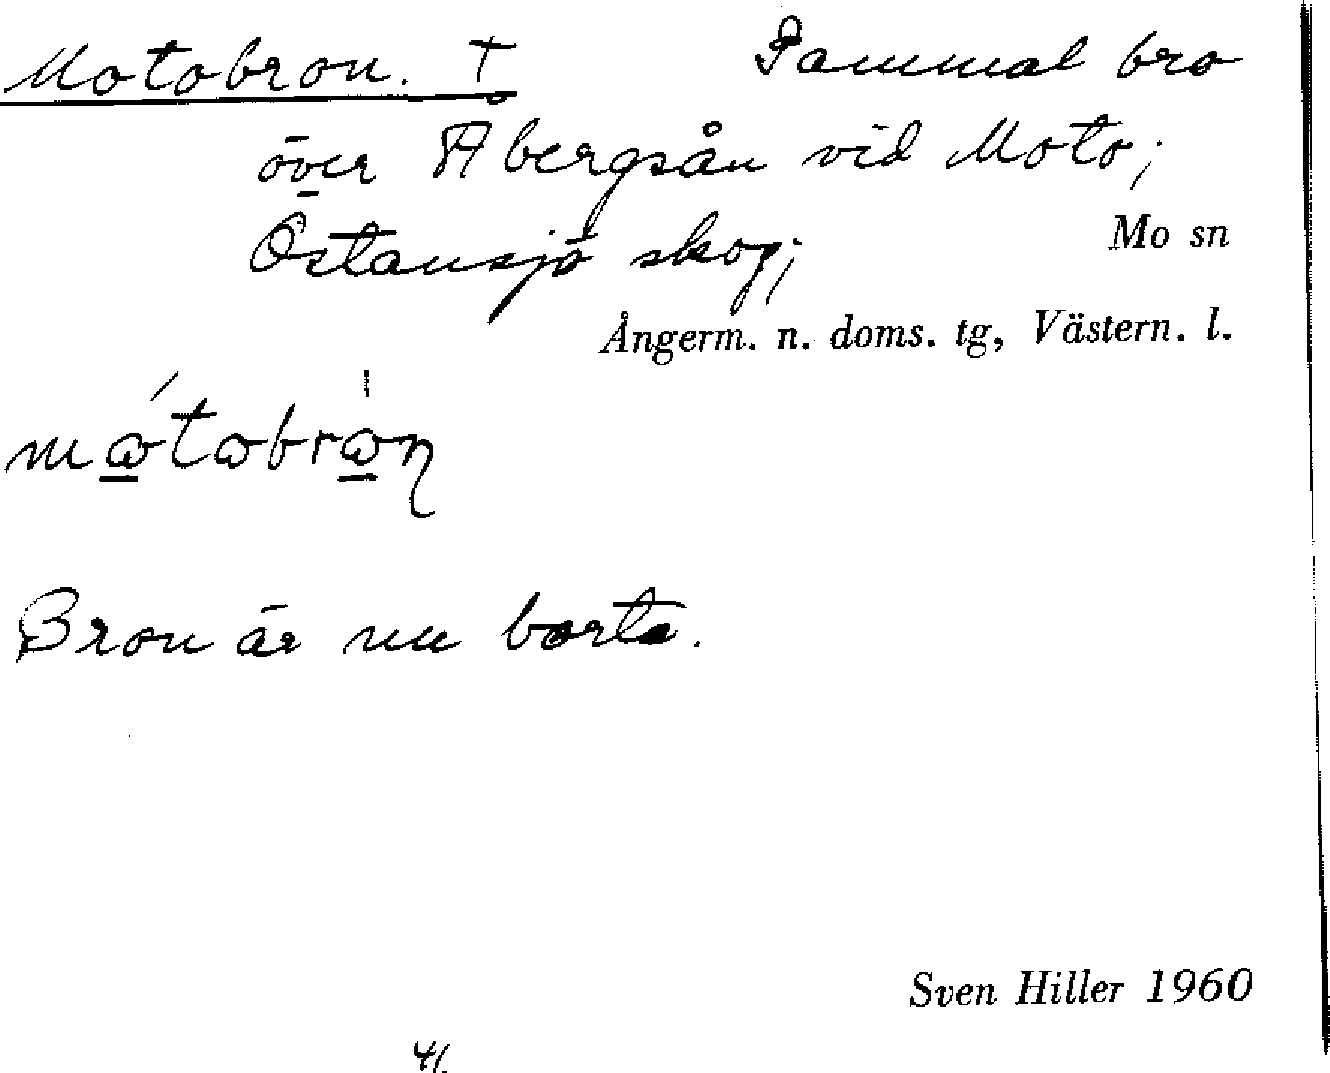 Motobron. † Gammal bro
över Åbergsån vid Moto;
Östansjö skog; Mo sn
Ångerm. n. doms. tg, Västern. l.
Bron är nu borta.
Sven Hiller 1960
41.